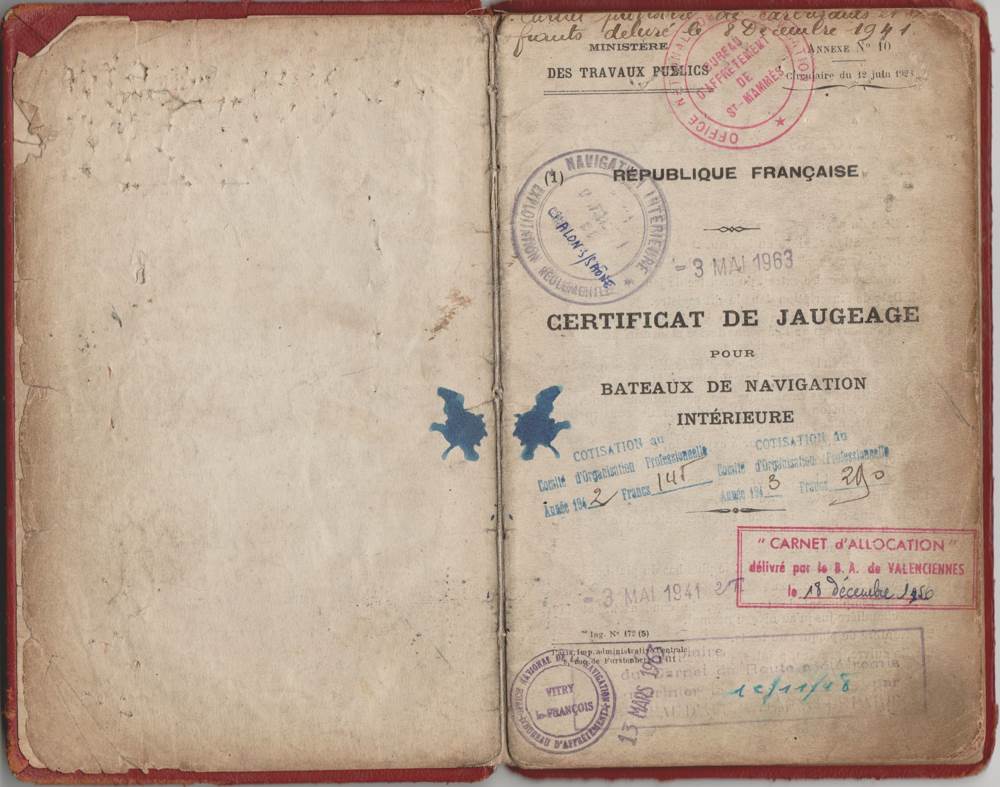 délivré le 8 Décembre 1941.
MINISTÈRE
DES TRAVAUX PUBLICS
ANNEXE Nº 10
Circulaire du 12 juin 1923
BUREAU
D'AFFRÈTEMENT
DE
ST-MAMMÈS
OFFICE NATIONAL DE LA NAVIGATION
(1)
RÉPUBLIQUE FRANÇAISE
NAVIGATION INTÉRIEURE
EXPLOITATION RÉGLEMENTÉE
CHALON S/SAÔNE
- 3 MAI 1963
CERTIFICAT DE JAUGEAGE
POUR
BATEAUX DE NAVIGATION
INTÉRIEURE
COTISATION au
Comité d'Organisation Professionnelle
Année 1942 Francs 145
COTISATION au
Comité d'Organisation Professionnelle
Année 1943 Francs 290
"CARNET d'ALLOCATION"
délivré par le B. A. de VALENCIENNES
le 18 décembre 1950
- 3 MAI 1941
Ing. Nº 172 (5)
Paris, Imp. administrative Centrale
OFFICE NATIONAL DE LA NAVIGATION
BUREAU D'AFFRÈTEMENT
VITRY
le-FRANÇOIS
13 MARS 1963
du Carnet de Route
12/11/48